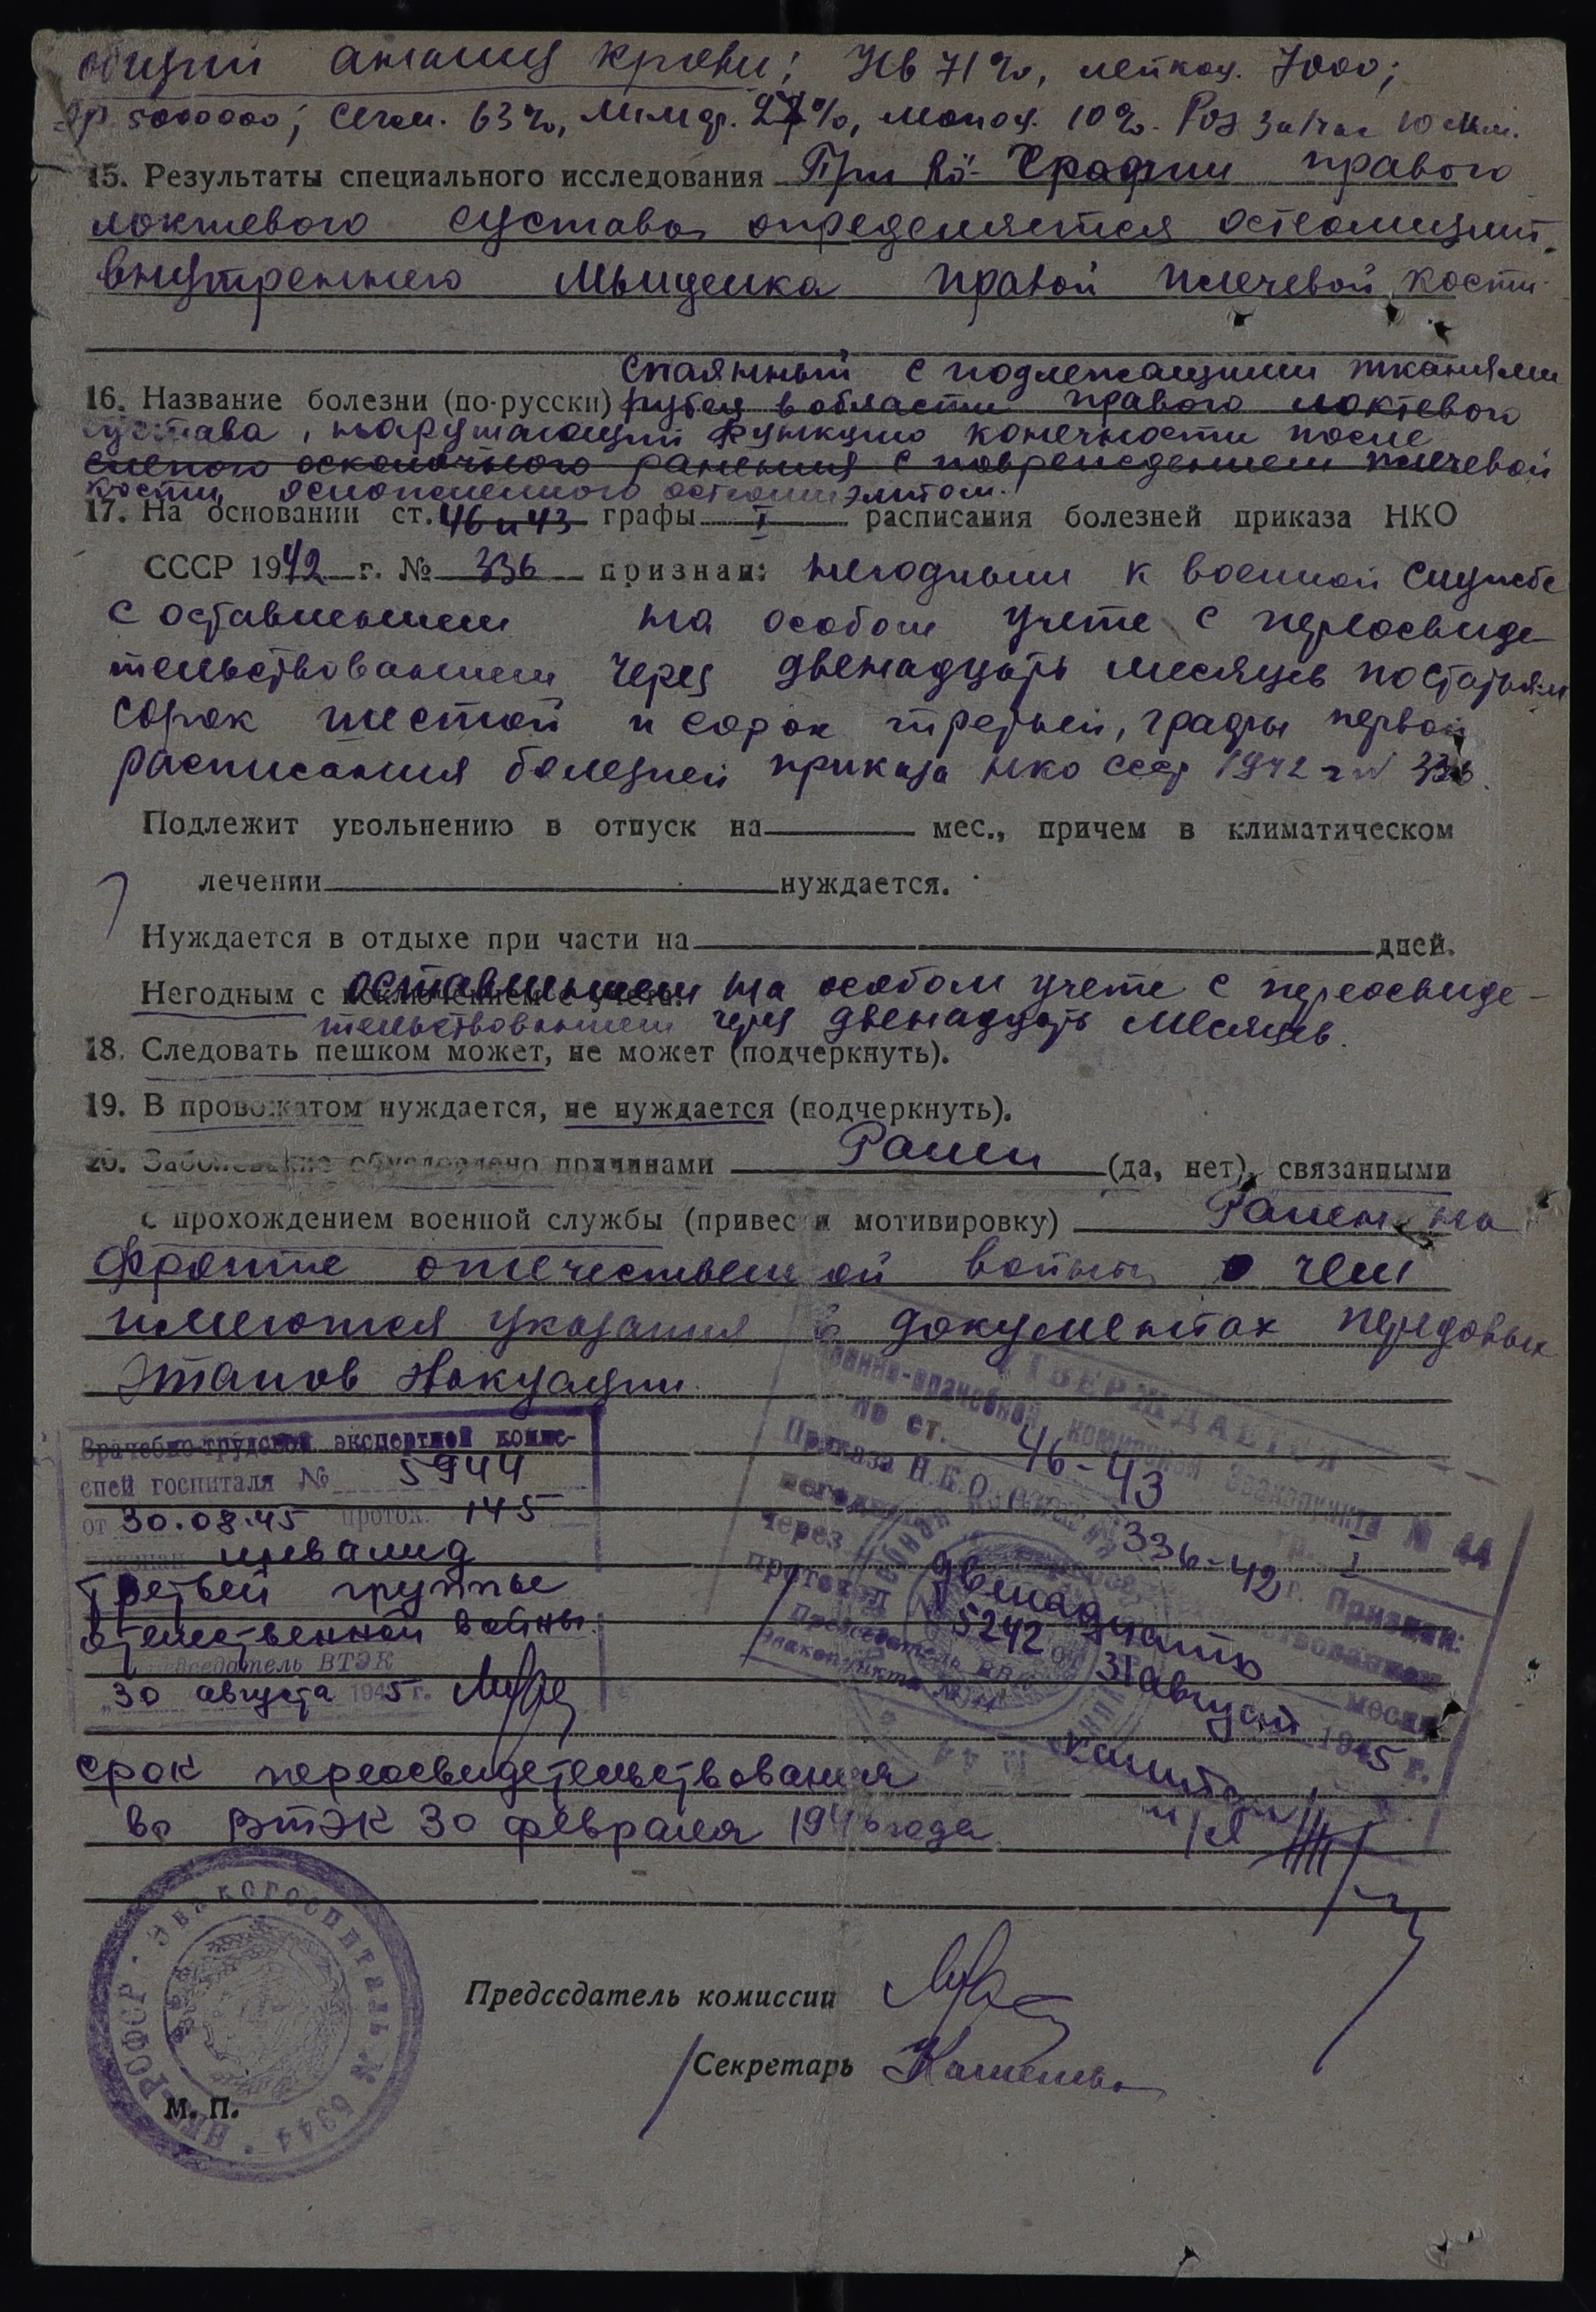 общий анализ крови: Hb 71%, лейкоц. 7000;
Эр. 5000000; сегм. 63%, лимф. 27%, моноц. 10%. Роэ за 1 час 10 мм.
15. Результаты специального исследования При Rö-графии правого
локтевого сустава определяется остеомиэлит
внутреннего мыщелка правой плечевой кости
спаянный с подлежащими тканями
16. Название болезни (по-русски) рубец в области правого локтевого
сустава, нарушающий функцию конечности после
слепого осколочного ранения с повреждением плечевой
кости, осложненного остеомиэлитом.
17. На основании ст. 46 и 43 графы I расписания болезней приказа НКО
СССР 1942 г. № 336 признан: негодным к военной службе
с оставлением на особом учете с переосвиде-
тельствованием через двенадцать месяцев по статьям
сорок шестой и сорок третьей, графы первой
расписания болезней приказа НКО СССР 1942 г № 336.
Подлежит увольнению в отпуск на мес., причем в климатическом
лечении нуждается.
Нуждается в отдыхе при части на дней.
Негодным с исключением с учета. оставлением на особом учете с переосвиде-
тельствованием через двенадцать месяцев.
18. Следовать пешком может, не может (подчеркнуть).
19. В провожатом нуждается, не нуждается (подчеркнуть).
20. Заболевание обусловлено причинами Ранен (да, нет), связанными
с прохождением военной службы (привести мотивировку) Ранен на
фронте отечественной войны о чем
имеются указания в документах передовых
этапов эвакуации
Врачебно-трудовой экспертной комис-
сией госпиталя № 5944
от 30.08.45 проток. 145
признан инвалид
Третьей группы
отечественной войны.
Председатель ВТЭК
„30 августа 1945 г.
УТВЕРЖДАЕТСЯ
военно-врачебной комиссией эвакопункта № 44
по ст. 46-43 гр. I
Приказа Н.К.О. 336-42 г. Признан:
негодным
через двенадцать месяц
протокол 5242 от 31 август 1945 г.
Председатель ВВК
эвакопункта № 44
капитан
м/с
срок переосвидетельствования
во ВТЭК 30 февраля 1946 года
РСФСР • Эвакогоспиталь № 5944 •
Председатель комиссии
Секретарь
М. П.